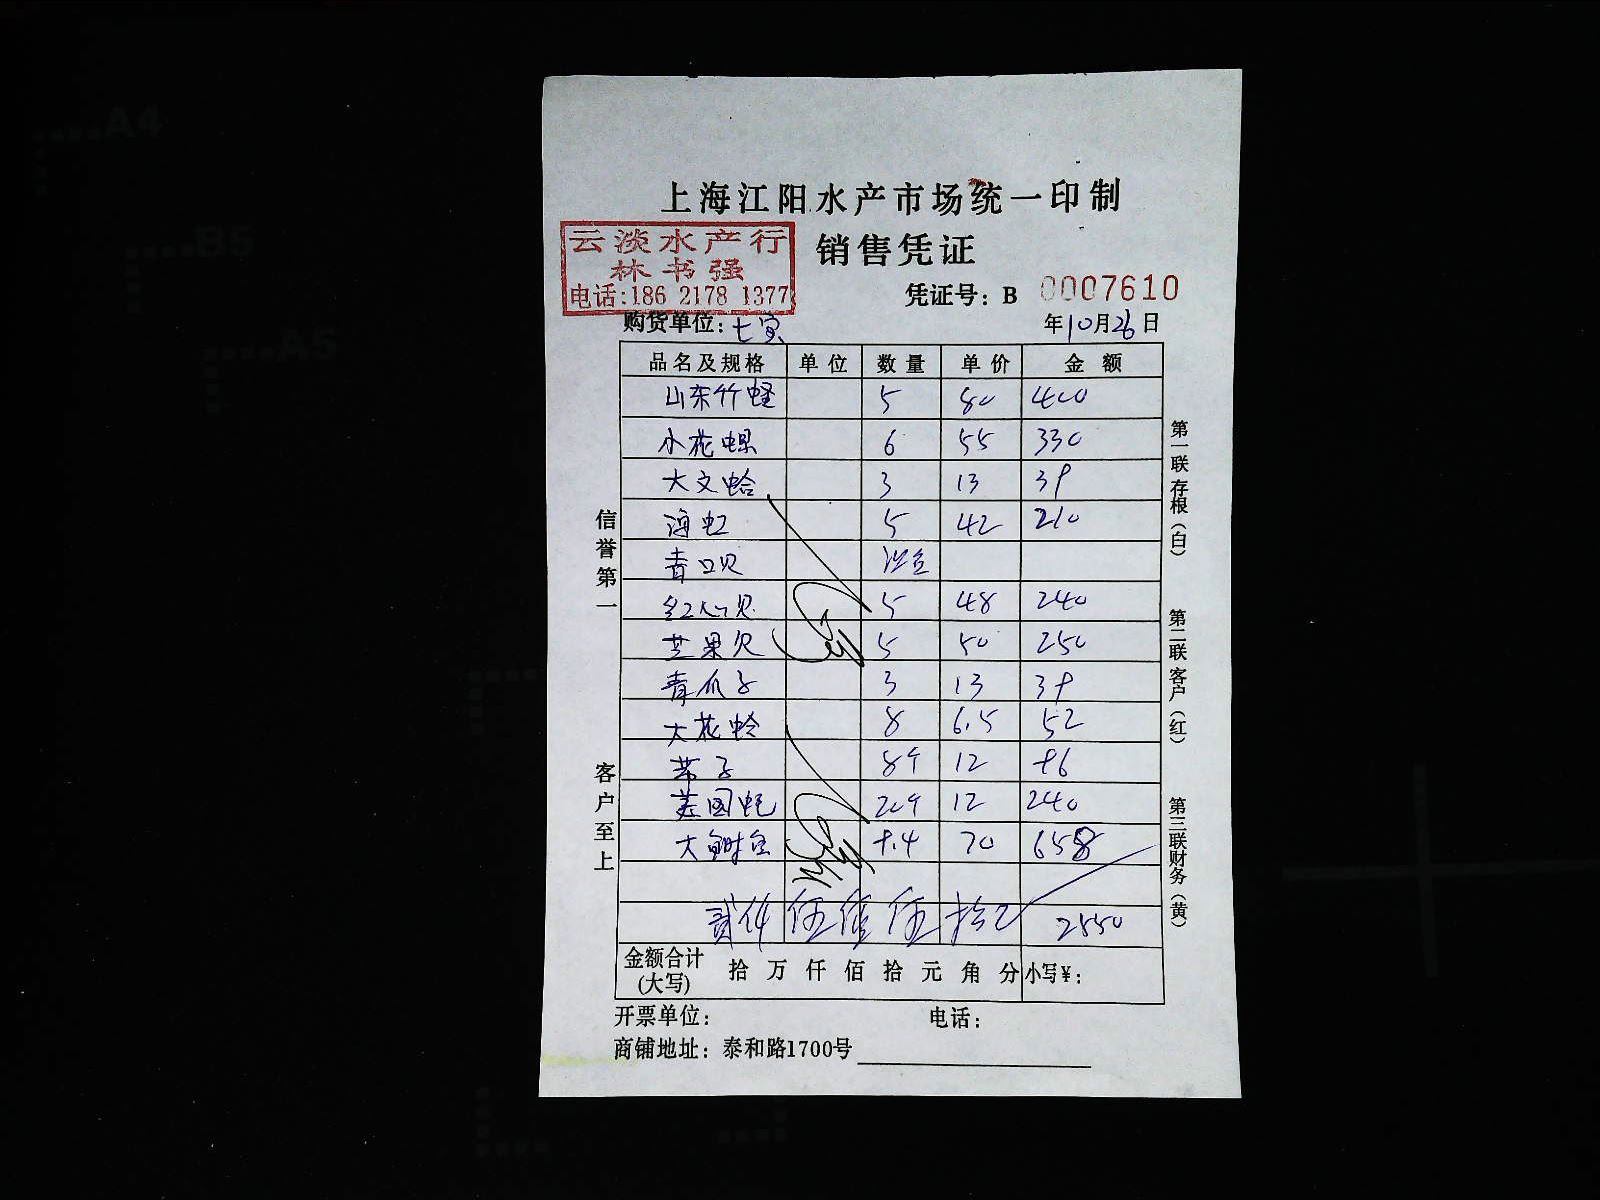 上海江阳水产市场统一印制
销售凭证
云淡水产行
林书强
电话:186 2178 1377
凭证号: B 0007610
购货单位: 七宝 年10月26日
品名及规格 单位 数量 单价 金额
山东竹蛏 5 80 400
小花螺 6 55 330
大文蛤 3 13 39
海虹 5 42 210
青口贝 没货
红心贝 5 48 240
芒果贝 5 50 250
青瓜子 3 13 39
大花蛤 8 6.5 52
带子 8个 12 96
美国蚝 20个 12 240
大鲥鱼 9.4 70 658
贰仟伍佰伍拾元 2550
金额合计(大写) 拾 万 仟 佰 拾 元 角 分 小写¥:
开票单位: 电话:
商铺地址: 泰和路1700号
信誉第一
客户至上
第一联 存根(白)
第二联 客户(红)
第三联 财务(黄)
A4
B5
A5